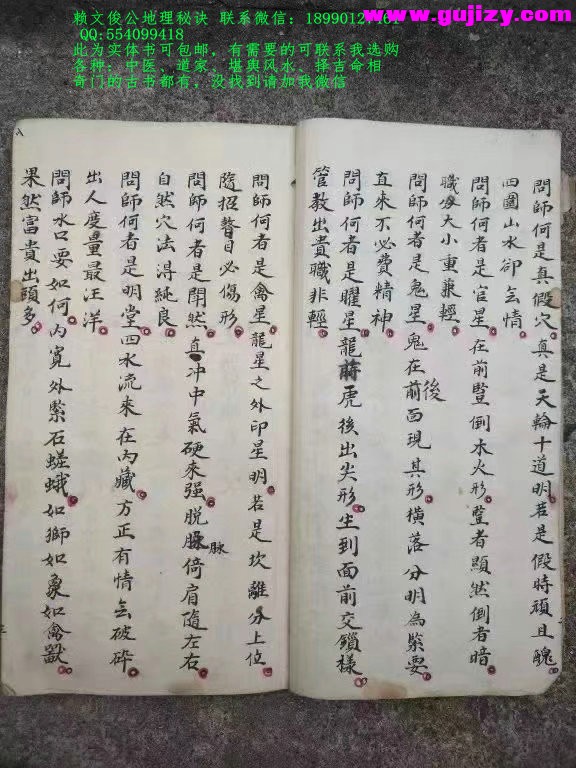 赖文俊公地理秘诀 联系微信：18990127461
www.gujizy.com
QQ:554099418
此为实体书可包邮，有需要的可联系我选购
各种：中医、道家、堪舆风水、择吉命相
奇门的古书都有，没找到请加我微信
問師何是真假穴真是天輪十道明若是假時頑且醜
四圍山水卻无情
問師何者是官星在前豎倒木火形豎者顯然倒者暗
職分大小重兼輕
問師何者是鬼星鬼在前後面現其形橫落分明為緊要
直來不必費精神
問師何者是曜星龍前虎後出尖形生到面前交鎖樣
管教出貴職非輕
問師何者是禽星龍星之外印星明若是坎離分上位
隨招瞽目必傷形
問師何者是閗然直冲中氣硬來强脱脉脉倚肩隨左右
自然穴法得純良
問師何者是明堂四水流來在内藏方正有情无破碎
出人度量最汪洋
問師水口要如何内寬外緊石嵯峨如獅如象如禽獸
果然富貴出頭多